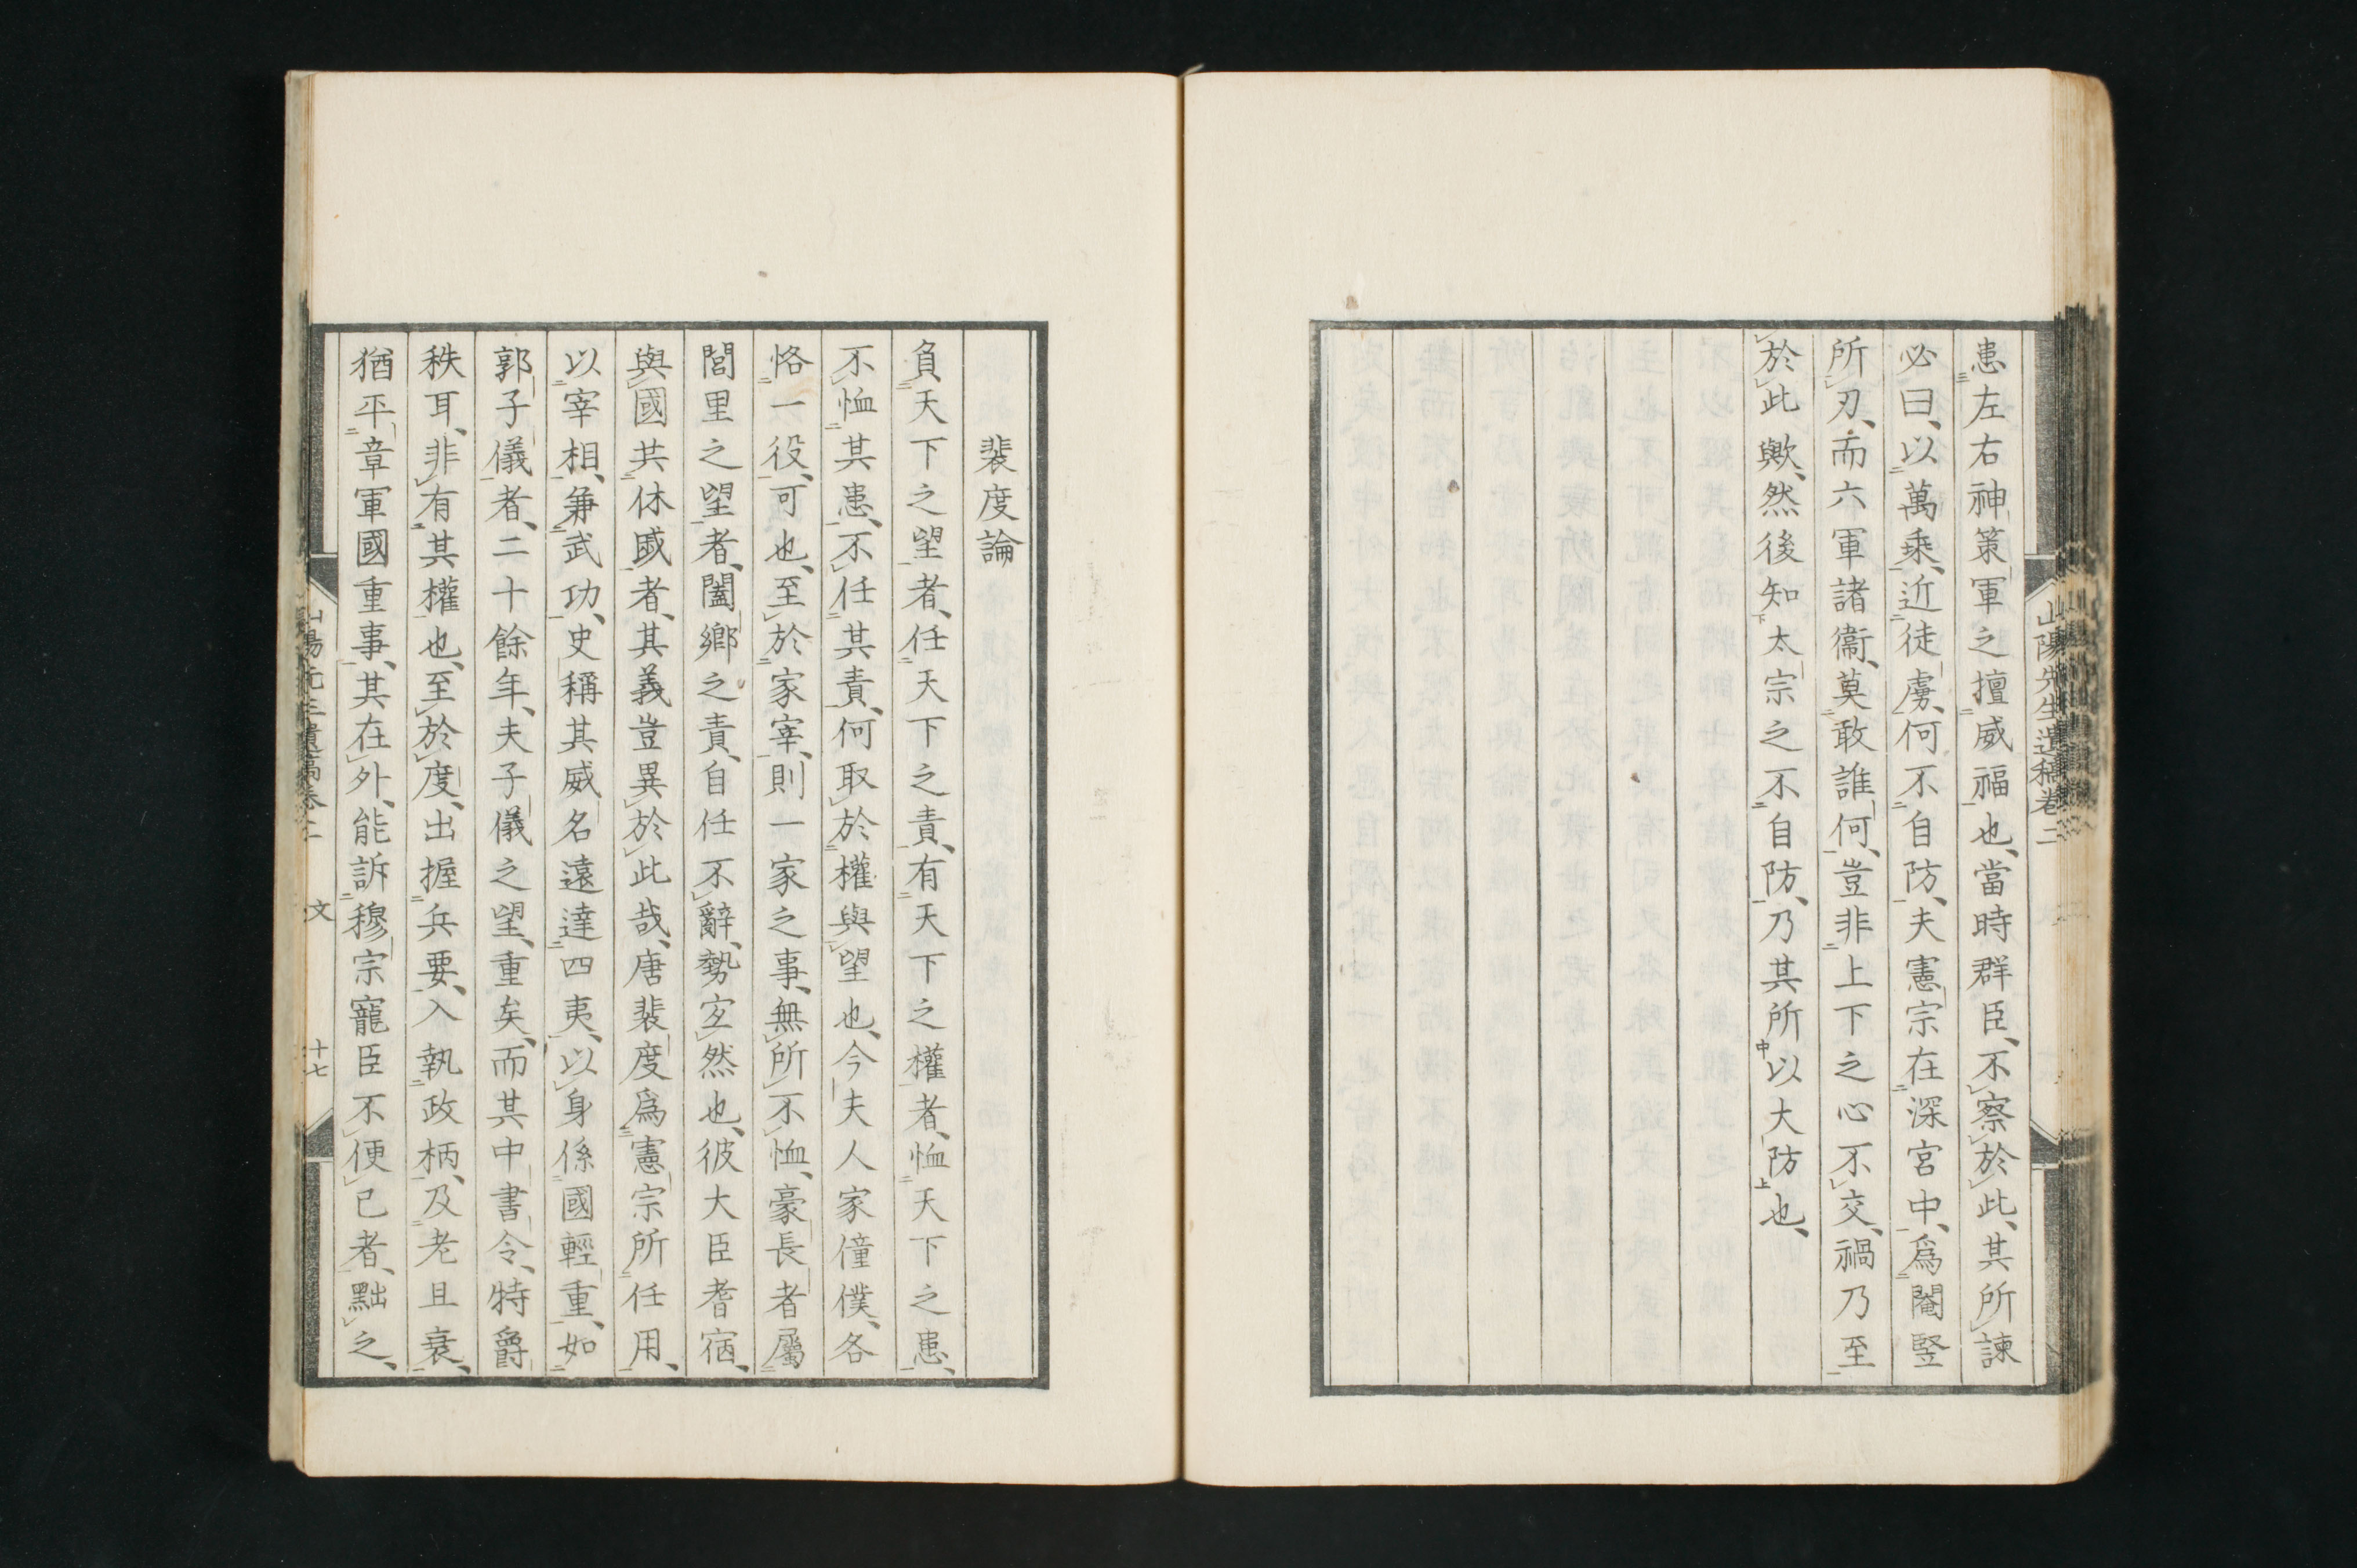 山陽先生遺稿卷二
患左右神策軍之擅威福也、當時群臣、不察於此、其所諫
必曰、以萬乘、近徒虜、何不自防、夫憲宗在深宮中、爲閹竪
所刃、而六軍諸衞、莫敢誰何、豈非上下之心不交、禍乃至
於此歟、然後知太宗之不自防、乃其所以大防也、
裴度論
負天下之望者、任天下之責、有天下之權者、恤天下之患、
不恤其患、不任其責、何取於權與望也、今夫人家僮僕、各
恪一役、可也、至於家宰、則一家之事、無所不恤、豪長者屬
閭里之望者、闔鄉之責、自任不辭、勢宜然也、彼大臣耆宿、
與國共休戚者、其義豈異於此哉、唐裴度爲憲宗所任用、
以宰相、兼武功、史稱其威名遠達四夷、以身係國輕重、如
郭子儀者、二十餘年、夫子儀之望、重矣、而其中書令、特爵
秩耳、非有其權也、至於度、出握兵要、入執政柄、及老且衰、
猶平章軍國重事、其在外、能訴穆宗寵臣不便已者、黜之、
山陽先生遺稿卷二 文 十七